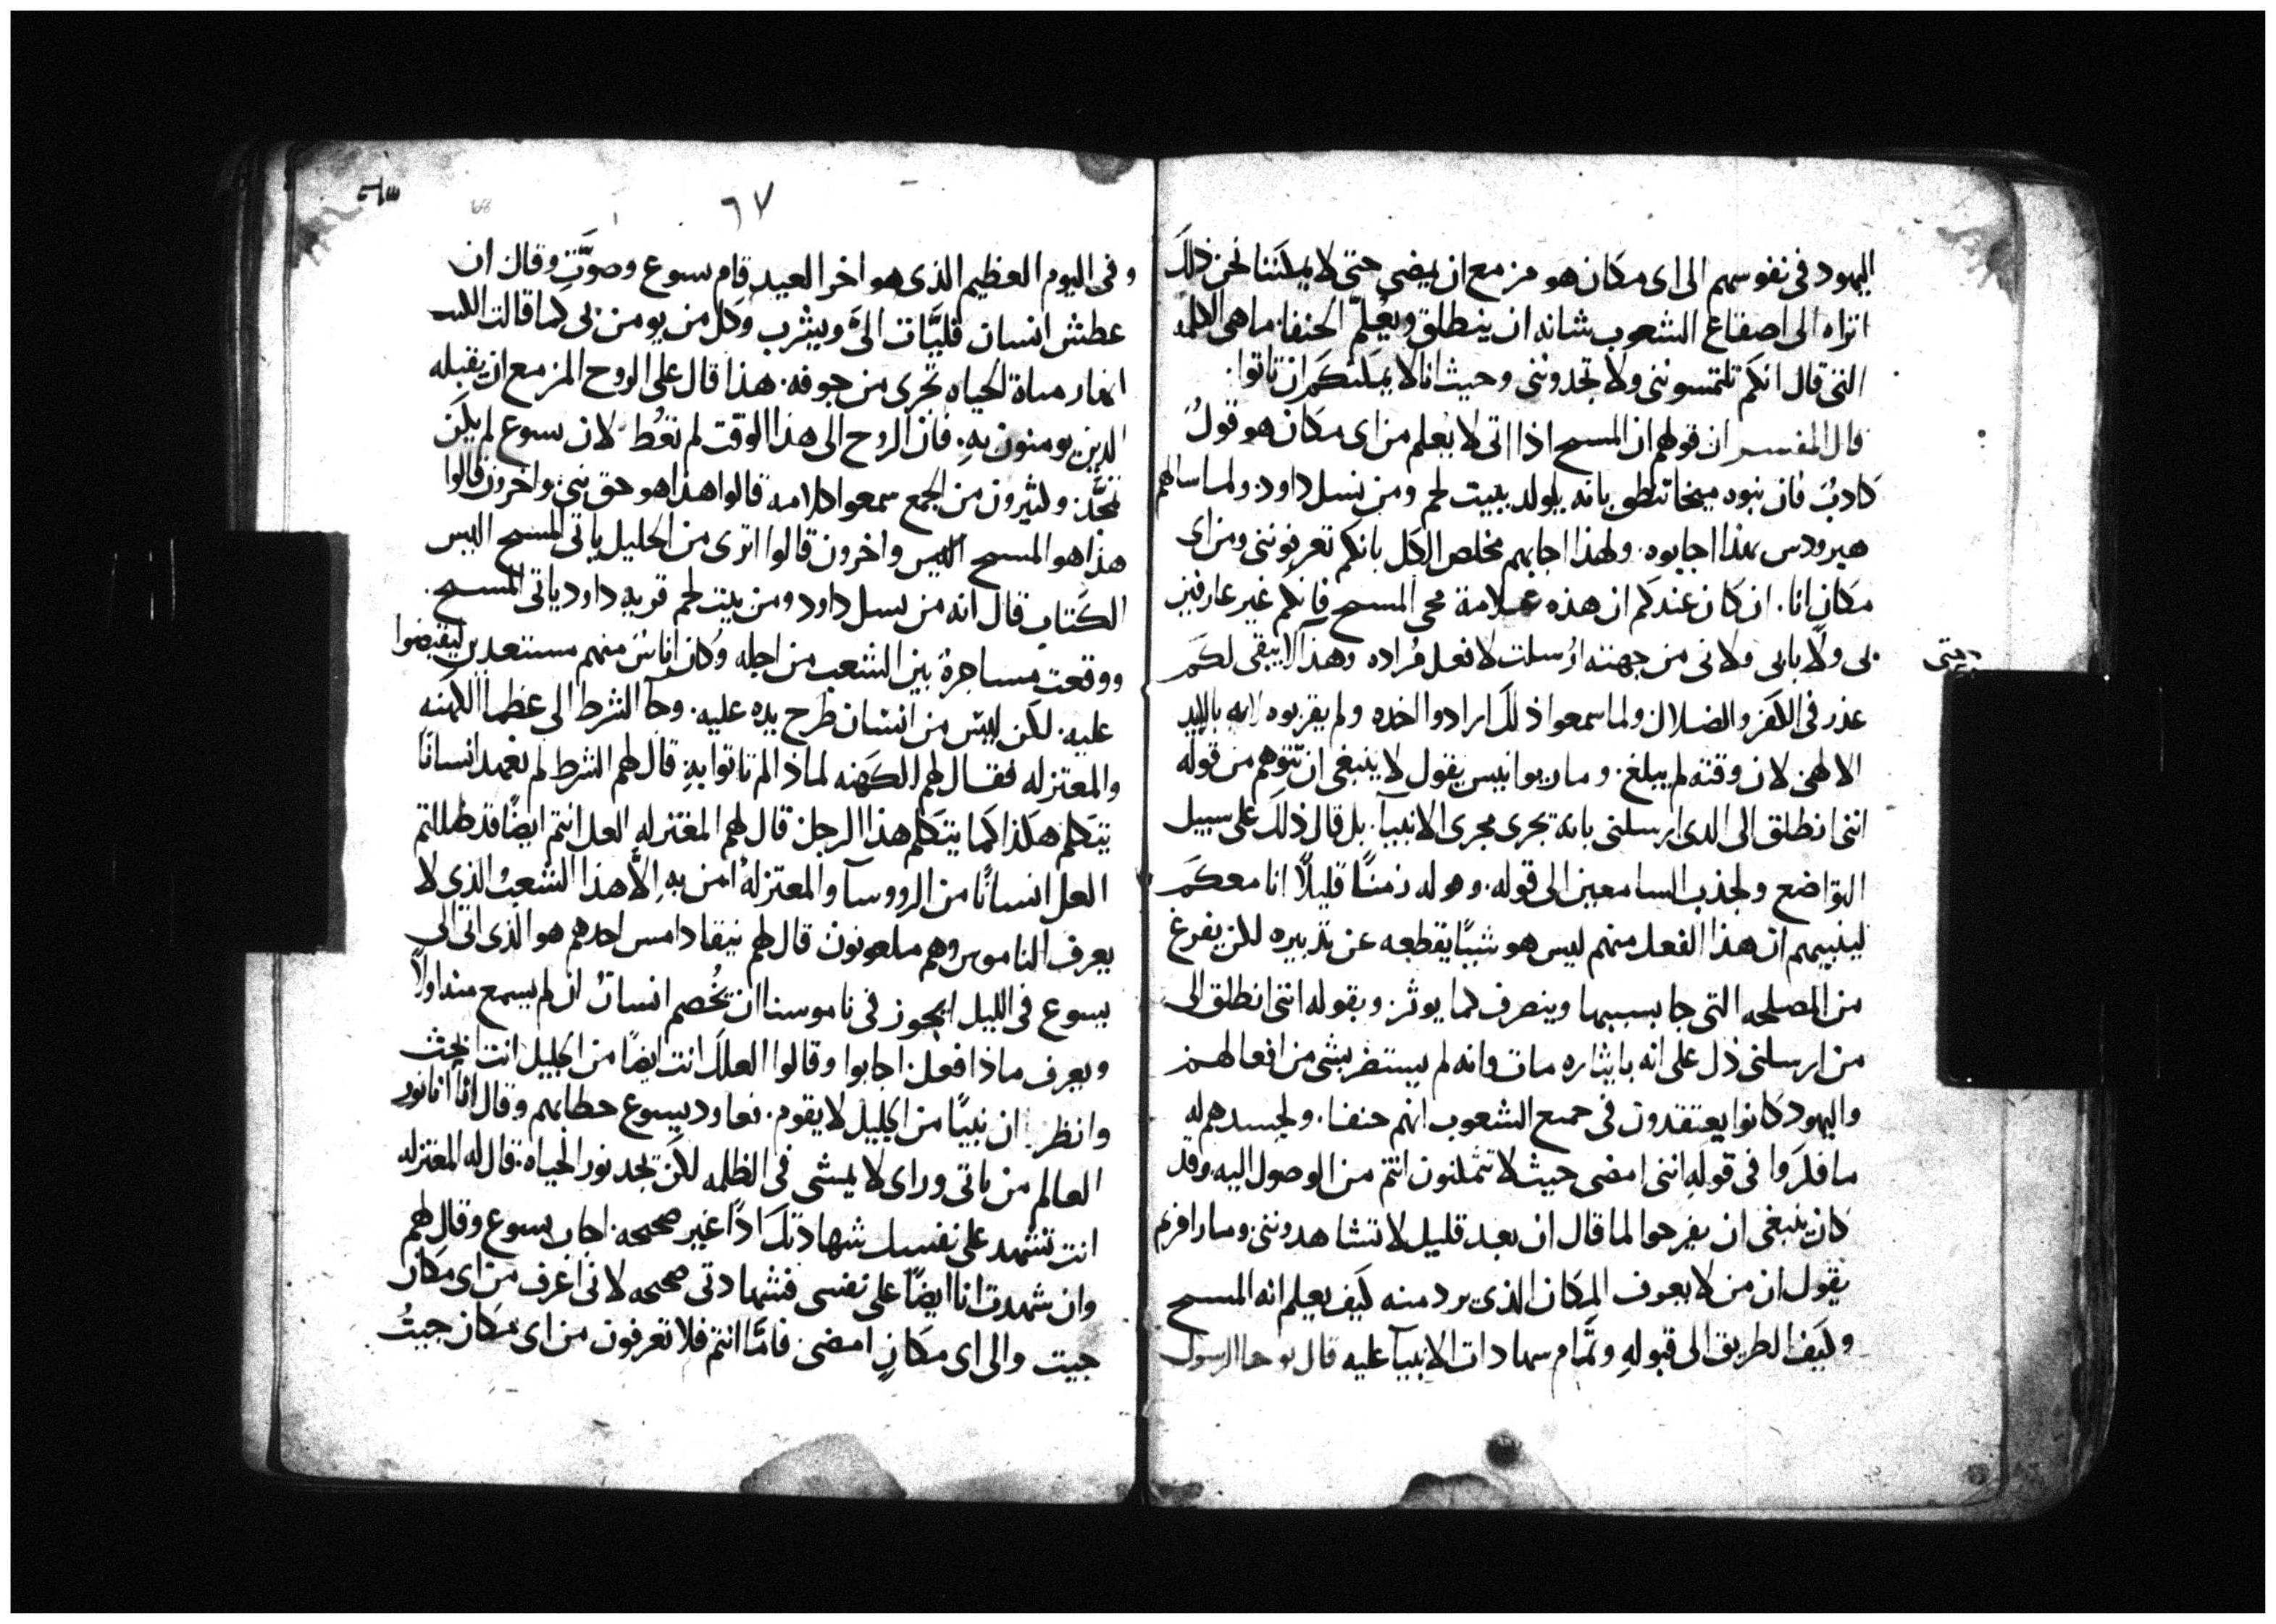 اليهود في نفوسهم الى اى مكان هو مزمع ان يمضي حتى لا يمكننا نحن ذلك
اتراه الى اصقاع الشعوب شانه ان ينطلق ويُعلّم الحنفا. ما هي الكلمه
التي قال انكم تلتمسونني ولا تجدونني وحيث انا لا يمكنكم ان تاتوا.
قال المفسر ان قولهم ان المسيح اذا اتى لا يعلم من اى مكان هو قولٌ
كاذبٌ فان نبوه ميخا تنطق بانه يولد ببيت لحم ومن نسل داود. ولما سالهم
هيرودس بهذا اجابوه. ولهذا اجابهم مخلص الكل بانكم تعرفونني ومن اى
مكان انا. ان كان عندكم ان هذه علامة مجى المسيح فانكم غير عارفين
بي ولا بابي ولاني من جهته ارُسلت لافعل مُراده وهذا لا يبقى لكم
حتى
عذر في الكفر والضلال ولما سمعوا ذلك ارادوا اخذه ولم يقربوه لانه بالايد
الالهي لان وقته لم يبلغ. ومار يوانيس يقول لا ينبغي ان نتوهم من قوله
انني انطلق الى الذى ارسلني بانه يجرى مجرى الانبيآ. بل قال ذلك على سبيل
التواضع ولجذب السامعين الى قوله. وقوله زمنًا قليلًا انا معكم
لينبيهم ان هذا الفعل منهم ليس هو شيًا يقطعه عن تدبيره لكن يفرغ
من المصلحه التي جا بسببها وينصرف كما يوثر. وبقوله انني انطلق الى
من ارسلني دل على انه بايثاره مات وانه لم يستضر بشي من افعالهم
واليهود كانوا يعتقدون في جميع الشعوب انهم حنفا. ولحسدهم له
ما فكروا في قوله انني امضى حيث لا تتمكنون انتم من الوصول اليه وقد
كان ينبغي ان يفرحوا لما قال ان بعد قليل لا تشاهدونني ومار افريم
يقول ان من لا يعرف المكان الذي يرد منه كيف يعلم انه المسيح
وكيف الطريق الى قبوله وتمام شهادات الانبيآ عليه قال يوحنا الرسول
٦٧
68
وفي اليوم العظيم الذى هو اخر العيد قام يسوع وصوَّت وقال ان
عطش انسان فليَّات الىَّ ويشرب وكل من يومن بي كما قالت الكتب
انهار مياة الحياه تجرى من جوفه. هذا قال على الروح المزمع ان يقبله
الذين يومنون به. فان الروح الى هذا الوقت لم تعُط لان يسوع لم يكن
تمجَّد. وكثيرون من الجمع سمعوا كلامه قالوا هذا هو حق نبي. واخرون قالوا
هذا هو المسيح واخرون قالوا اترى من الجليل ياتي المسيح اليس
الكتاب قال انه من نسل داود ومن بيت لحم قريه داود ياتي المسيح.
ووقعت مشاجرة بين الشعب من اجله وكان اناسٌ منهم مستعدين ليقبضوا
عليه. لكن ليس من انسان طرح يده عليه. وجآ الشرط الى عظما الكهنه
والمعتزله فقال لهم الكهنه لماذا لم تاتوا به قال لهم الشرط لم نعهد انسانًا
يتكلم هكذا كما يتكلم هذا الرجل قال لهم المعتزله العل انتم ايضًا قد ظللتم
العل انسانًا من الرووسآ والمعتزلة امن به الَّا هذا الشعب الذي لا
يعرف الناموس وهم ملعونون قال لهم نيقاداموس احدهم هو الذى اتى الى
يسوع في الليل ايجوز في ناموسنا ان تُخصم انسانٌ ان لم يسمع منه اولًا
ويعرف ماذا فعل. اجابوا وقالوا العلك انت ايضًا من الجليل انت ابحث
وانظر. ان نبيًا من الجليل لا يقوم. فعاود يسوع خطابهم وقال انا انا نور
العالم من ياتي وراى لا يمشى في الظلمه لكن يجد نور الحياه. قال له المعتزله
انت تشهد على نفسك شهادتك اذًا غير صحيحه. اجاب يسوع وقال لهم
وان شهدت انا ايضًا على نفسى فشهادتي صحيحه لاني اعرف من اى مكان
جيت والى اى مكانٍ امضى فامَّا انتم فلا تعرفون من اى مكان جيتُ